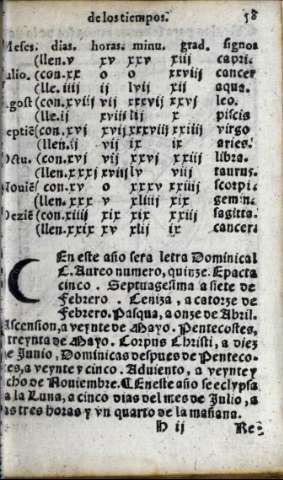 de los tiempos. 58
Meses. dias. horas. minu. grad. signos
(llen. v xv xxv xiii capri.
Julio. (con. xx o o xxviij cancer
(lle. iiij ij lvij xij aqua.
gost (con. xviij vij xxxvij xxvj leo.
(lle. ij xviij lij x piscis
eptiē (con. xvj xvij xxxviij xxiiij virgo
(llen. ij vij ix ix aries.
Octu. (con. xvj vij xxvj xxiij libra.
(llen. xxxj xviij lv vij taurus.
Nouiē (con. xv o xxxv xxiij scorpi.
(llen. xxx v xliiij xix gemin.
Deziē (con. xiiij xix xix xxiij sagitta.
(llen. xxix xv xlij ix cancer.
En este año sera letra Dominical
C. Aureo numero, quinze. Epacta
cinco. Septuagesima a siete de
febrero. Ceniza, a catorze de
febrero. Pasqua, a onze de Abril.
Ascension, a veynte de Mayo. Pentecostes,
treynta de Mayo. Corpus Christi, a diez
e Junio, Dominicas despues de Penteco-
tes, a veynte y cinco. Aduiento, a veynte y
cho de Nouiembre. C En este año se eclypsa
a la Luna, a cinco dias del mes de Julio, a
as tres horas y vn quarto de la mañana.
H ij Re-